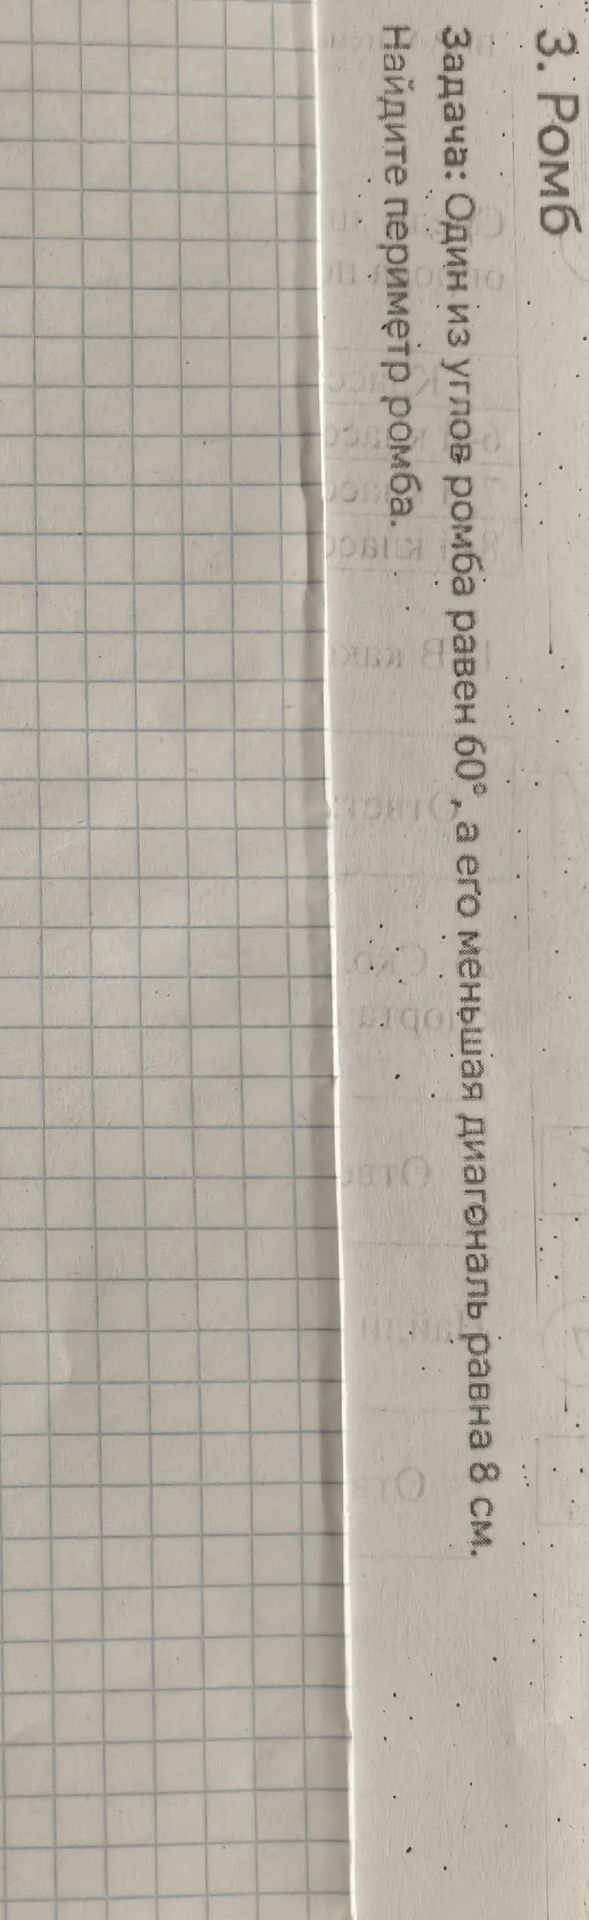 3. Ромб
Задача: Один из углов ромба равен 60°, а его меньшая диагональ равна 8 см.
Найдите периметр ромба.